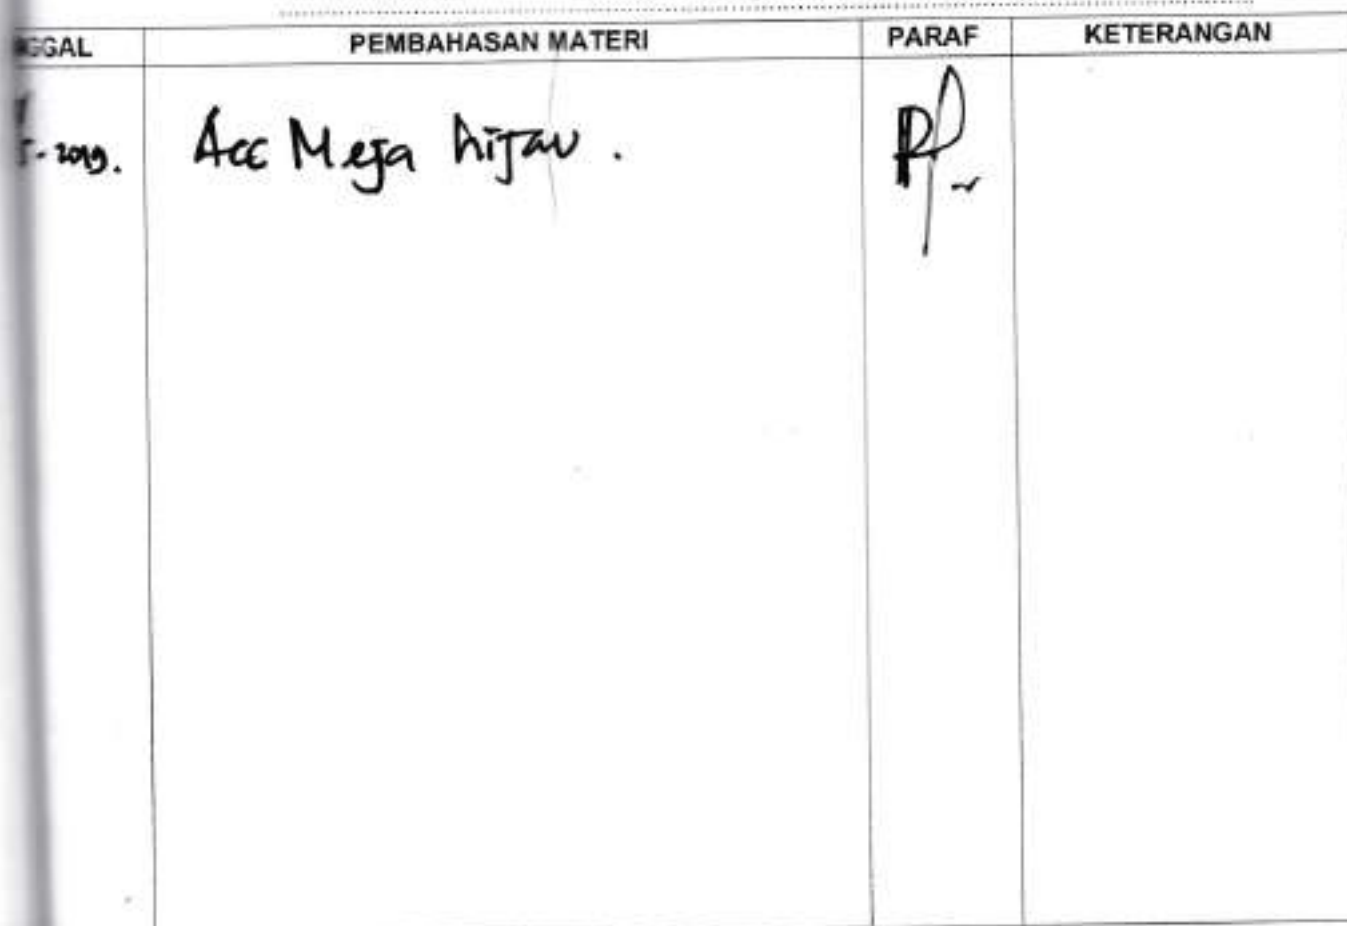 GGAL PEMBAHASAN MATERI PARAF KETERANGAN
-2019. Acc Meja hijau.